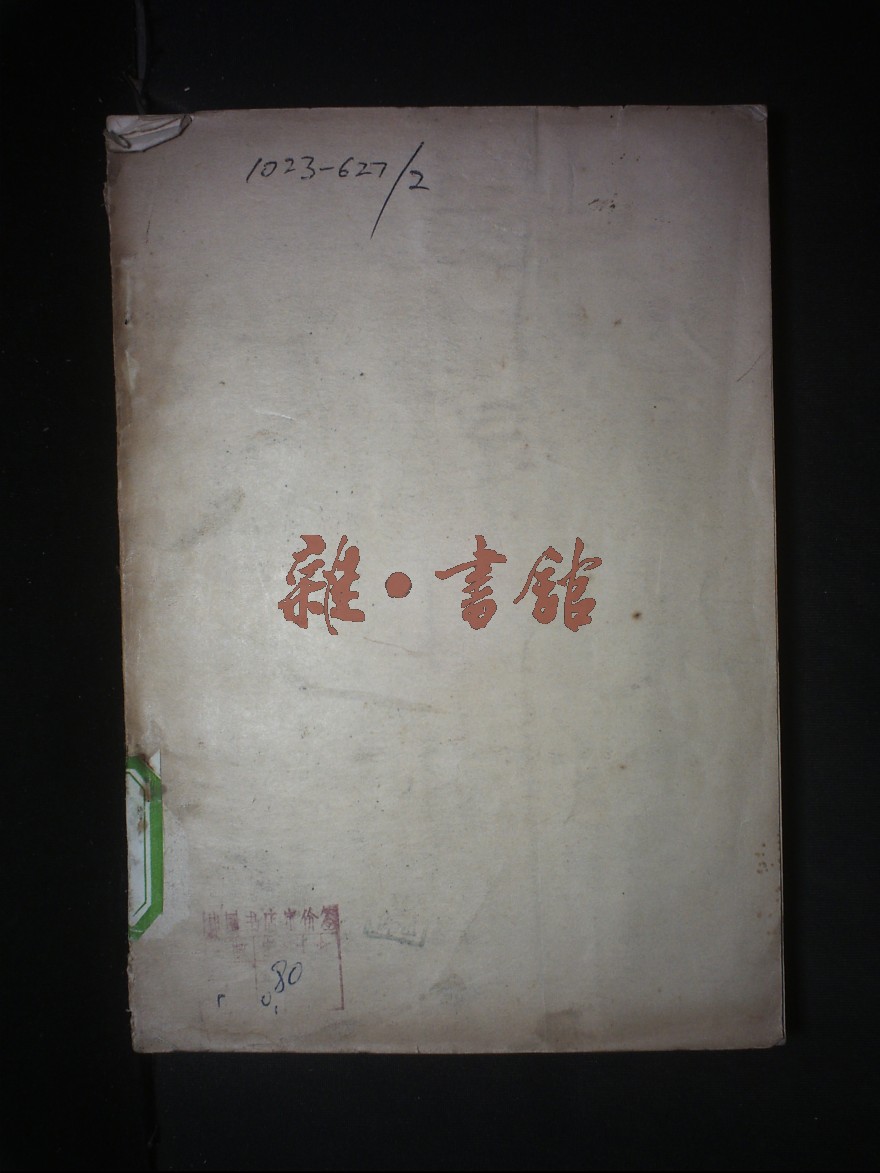 1023-627/2
雜·書館
中国书店定价签
0.80